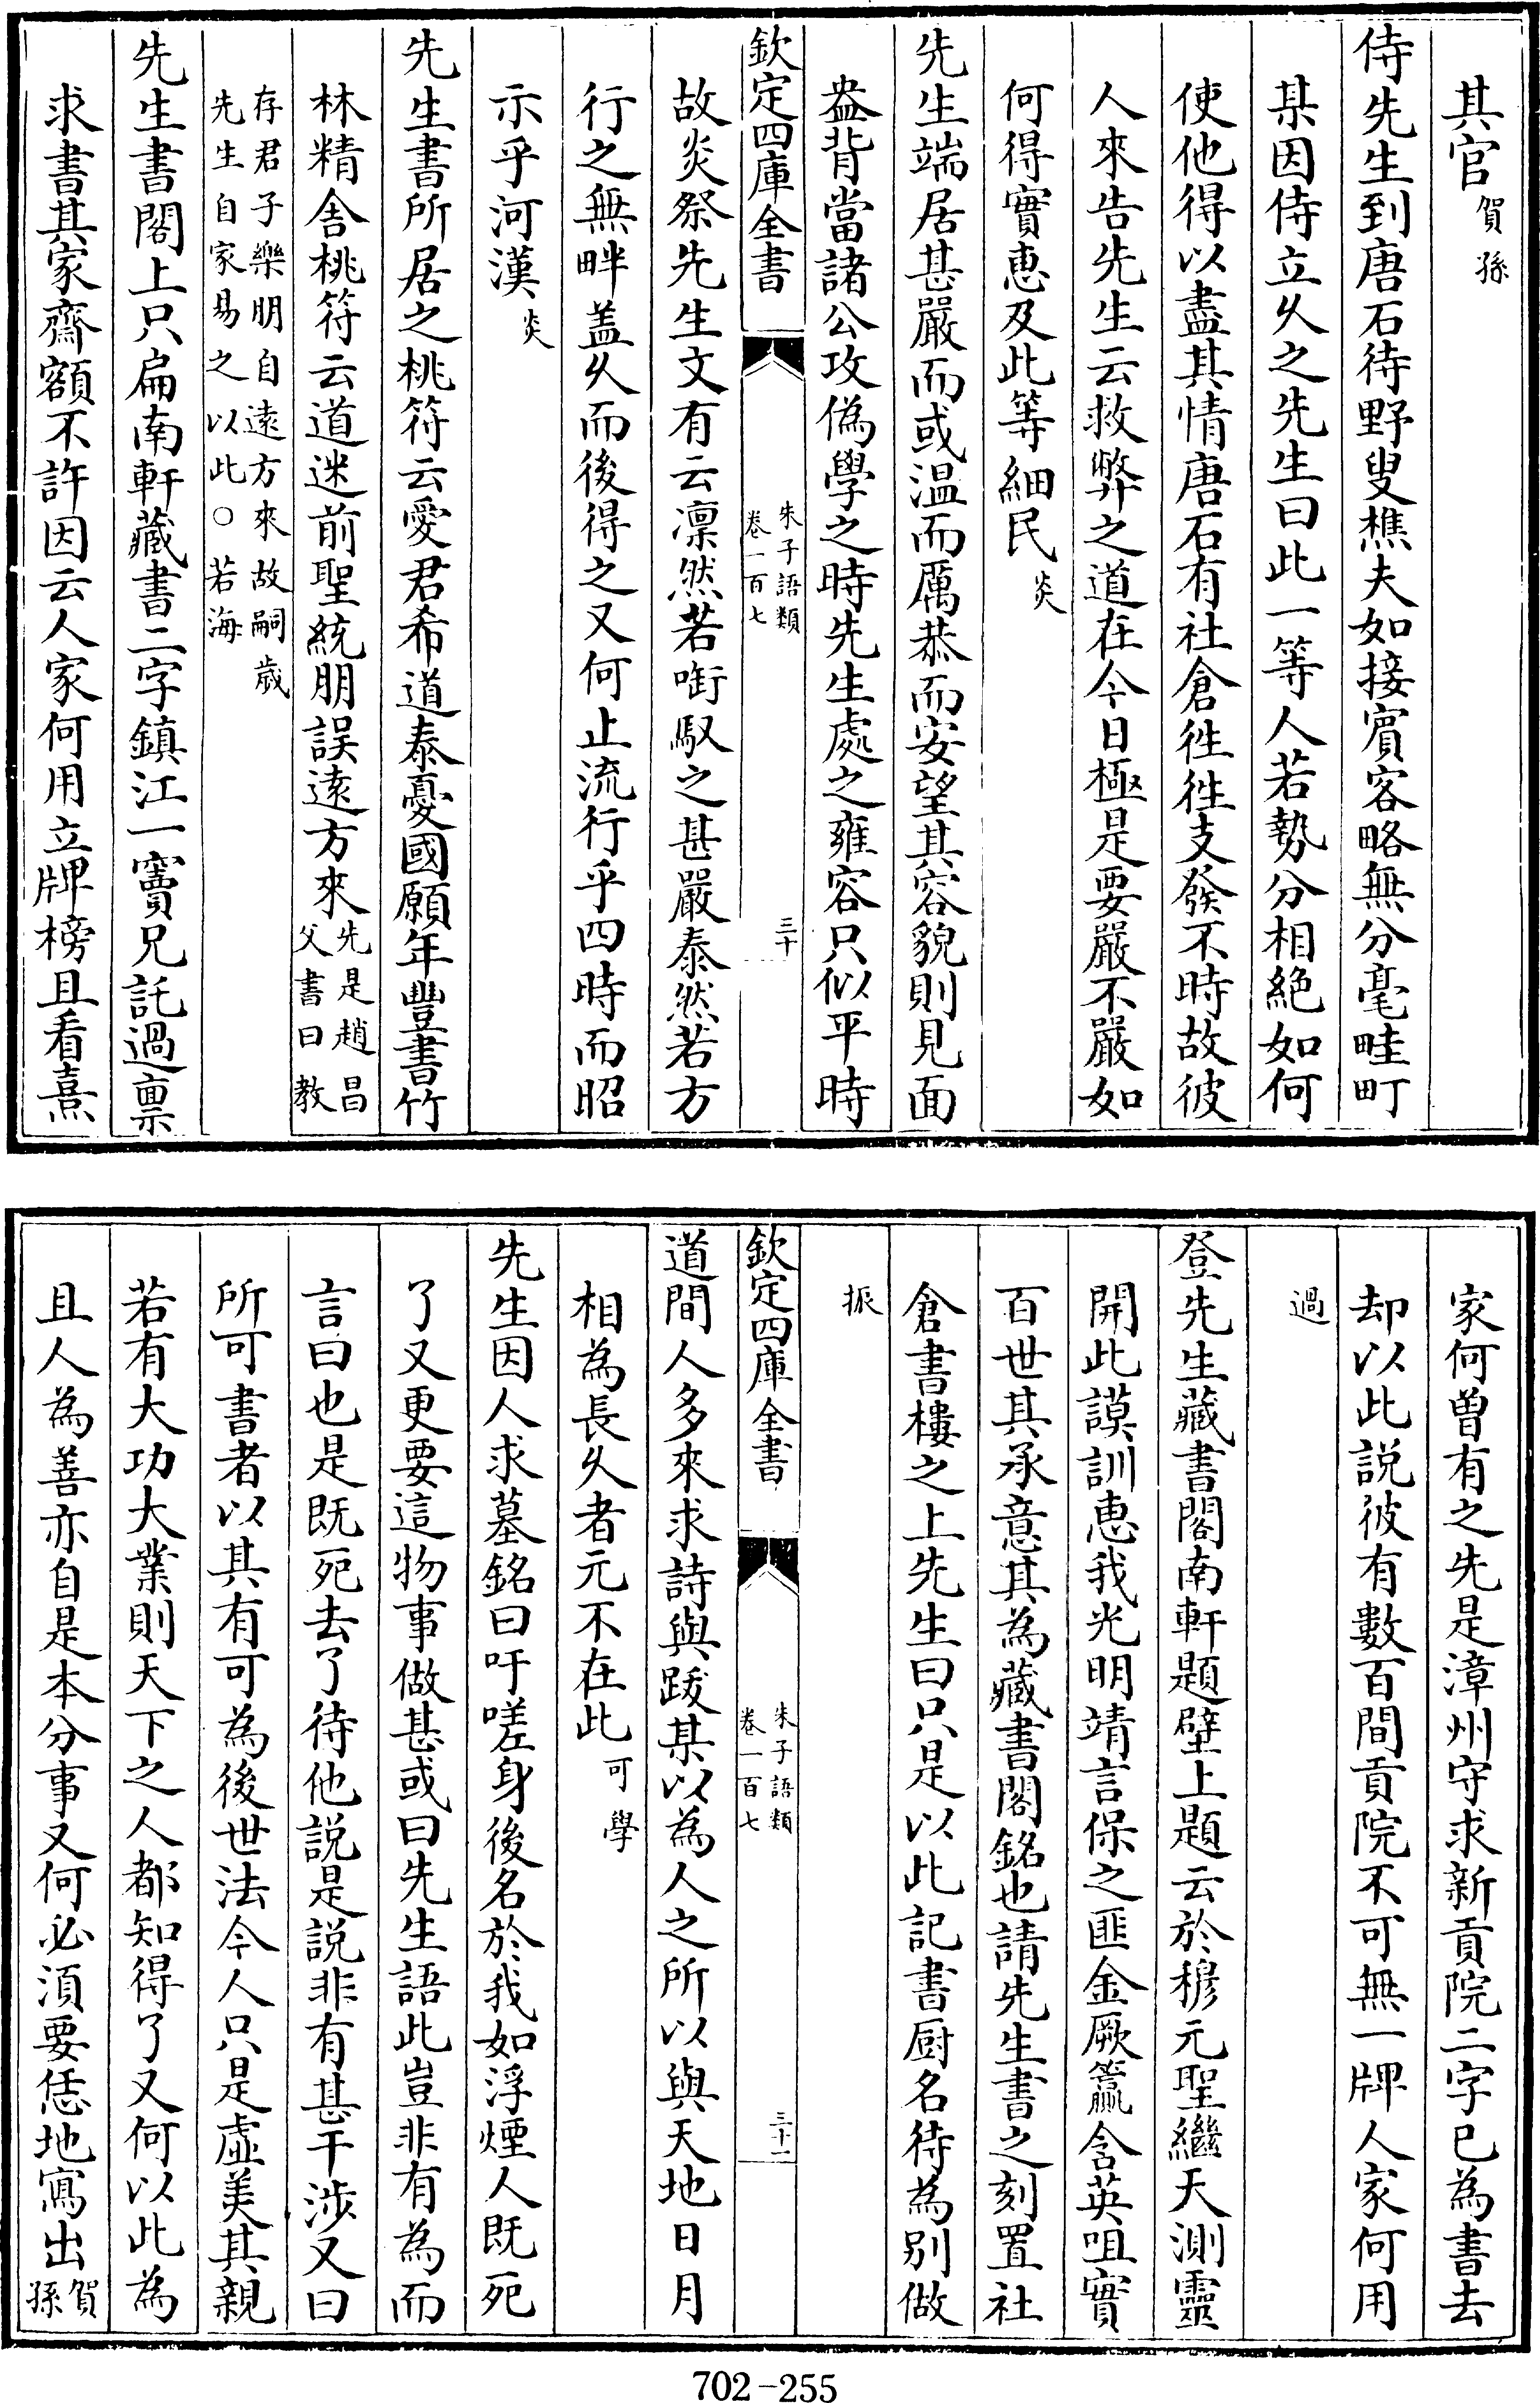 其官賀孫
侍先生到唐石待野叟樵夫如接賓客略無分毫畦町
某因侍立久之先生曰此一等人若勢分相絶如何
使他得以盡其情唐石有社倉徃徃支發不時故彼
人來告先生云救弊之道在今日極是要嚴不嚴如
何得實惠及此等細民炎
先生端居甚嚴而或温而厲恭而安望其容貌則見面
盎背當諸公攻偽學之時先生處之雍容只似平時
欽定四庫全書 朱子語類 卷一百七 三十
故炎祭先生文有云凛然若㘅馭之甚嚴泰然若方
行之無畔盖久而後得之又何止流行乎四時而昭
示乎河漢炎
先生書所居之桃符云愛君希道泰憂國願年豐書竹
林精舍桃符云道迷前聖統朋誤遠方來先是趙昌父書曰教
存君子樂朋自遠方來故嗣歲先生自家易之以此○若海
先生書閣上只扁南軒藏書二字鎮江一竇兄託過稟
求書其家齋額不許因云人家何用立牌榜且看熹
家何曾有之先是漳州守求新貢院二字已為書去
却以此説彼有數百間貢院不可無一牌人家何用
過
登先生藏書閣南軒題壁上題云於穆元聖繼天測靈
開此謨訓惠我光明靖言保之匪金厥籯含英咀實
百世其承意其為藏書閣銘也請先生書之刻置社
倉書樓之上先生曰只是以此記書厨名待為别做
振
欽定四庫全書 朱子語類 卷一百七 三十一
道間人多來求詩與跋某以為人之所以與天地日月
相為長久者元不在此可學
先生因人求墓銘曰吁嗟身後名於我如浮煙人既死
了又更要這物事做甚或曰先生語此豈非有為而
言曰也是既死去了待他説是説非有甚干涉又曰
所可書者以其有可為後世法今人只是虚美其親
若有大功大業則天下之人都知得了又何以此為
且人為善亦自是本分事又何必須要恁地寫出賀孫
702-255